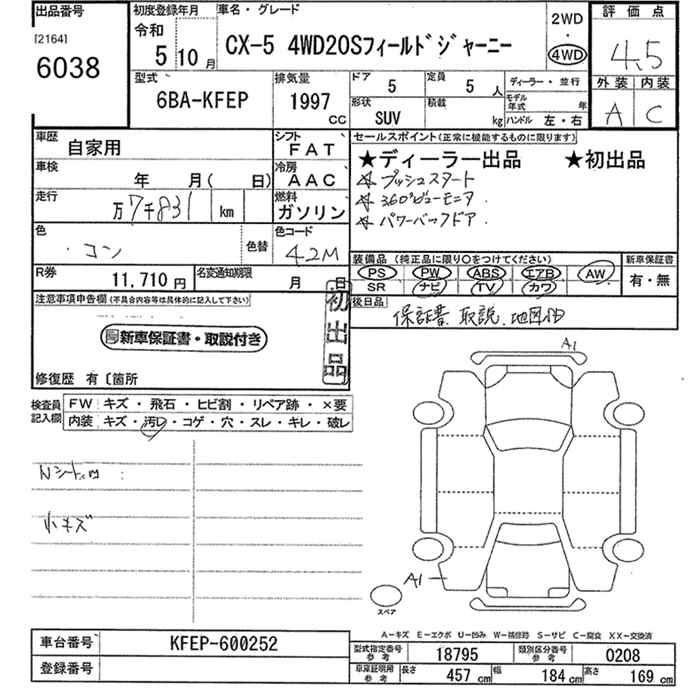 出品番号
[2164]
6038
初度登録年月
令和
5 10月
車名・グレード
CX-5 4WD20Sフィールドジャーニー
2WD
・
4WD
評価点
4.5
外装 内装
A C
型式
6BA-KFEP
排気量
1997
CC
ドア
5
定員
5 人
形状
SUV
積載
kg
ディーラー・並行
モデル年式 年
ハンドル 左・右
車歴
自家用
シフト
FAT
車検
年 月( 日)
冷房
AAC
走行
万7千831 km
燃料
ガソリン
色
・コン
色替
色コード
42M
R券
11,710 円
名変通知期限
月 日
セールスポイント(正常に機能するものに限ります)
★ディーラー出品 ★初出品
☆プッシュスタート
☆360°ビューモニタ
☆パワーバックドア
装備品(純正品に限り○をつけてください)
PS PW ABS エアB AW
SR ナビ TV カワ
新車保証書
有・無
後日品
保証書、取説、地図他
注意事項申告欄(不具合内容等は具体的に記入して下さい)
新車保証書・取説付き
初出品
修復歴 有〔箇所
検査員記入欄
FW キズ・飛石・ヒビ割・リペア跡・×要
内装 キズ・汚レ・コゲ・穴・スレ・キレ・破レ
Nシート凹
小キズ
A1
A1
スペア
A-キズ E-エクボ U-凹み W-補修跡 S-サビ C-腐食 XX-交換済
車台番号
KFEP-600252
登録番号
型式指定番号 参考
18795
類別区分番号 参考
0208
車庫証明用 参考
長さ 457 cm 幅 184 cm 高さ 169 cm